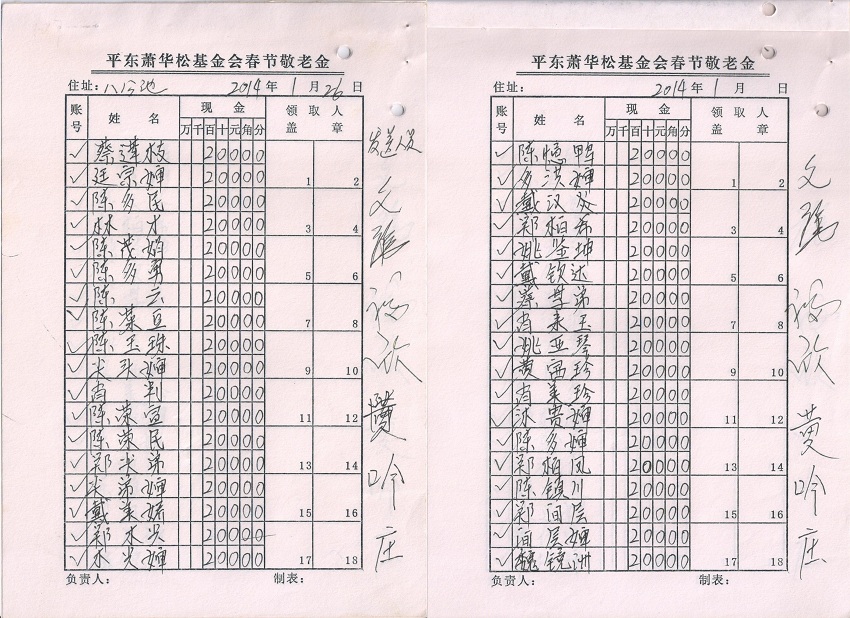 平东萧华松基金会春节敬老金
住址: 2014年1月26日
账号 姓名 现金 领取人盖章
万千百十元角分
✓ 蔡莲枝 20000
✓ 廷宗婵 20000 1 2
✓ 陈多民 20000
✓ 林才 20000 3 4
✓ 陈茂娟 20000
✓ 陈多勇 20000 5 6
✓ 陈云 20000
✓ 陈菜豆 20000 7 8
✓ 陈玉珠 20000
✓ 米头婵 20000 9 10
✓ 肖判 20000
✓ 陈荣宣 20000 11 12
✓ 陈荣民 20000
✓ 郑米弟 20000 13 14
✓ 米弟婵 20000
✓ 戴美 20000 15 16
✓ 郑木尖 20000
✓ 木尖婵 20000 17 18
负责人: 制表:
发送人员
文
黄吟庄
平东萧华松基金会春节敬老金
住址: 2014年1月 日
账号 姓名 现金 领取人盖章
万千百十元角分
✓ 陈 鸭 20000
✓ 多洪婵 20000 1 2
✓ 戴汉 20000
✓ 郑柏希 20000 3 4
✓ 姚坤 20000
✓ 戴钦达 20000 5 6
✓ 蔡 弟 20000
✓ 肖来玉 20000 7 8
✓ 姚亚琴 20000
✓ 黄宝珍 20000 9 10
✓ 肖美珍 20000
✓ 沐贵婵 20000 11 12
✓ 陈多婵 20000
✓ 郑柏凤 20000 13 14
✓ 陈镇川 20000
✓ 郑间层 20000 15 16
✓ 间层婵 20000
✓ 魏镜洲 20000 17 18
负责人: 制表:
文
黄吟庄